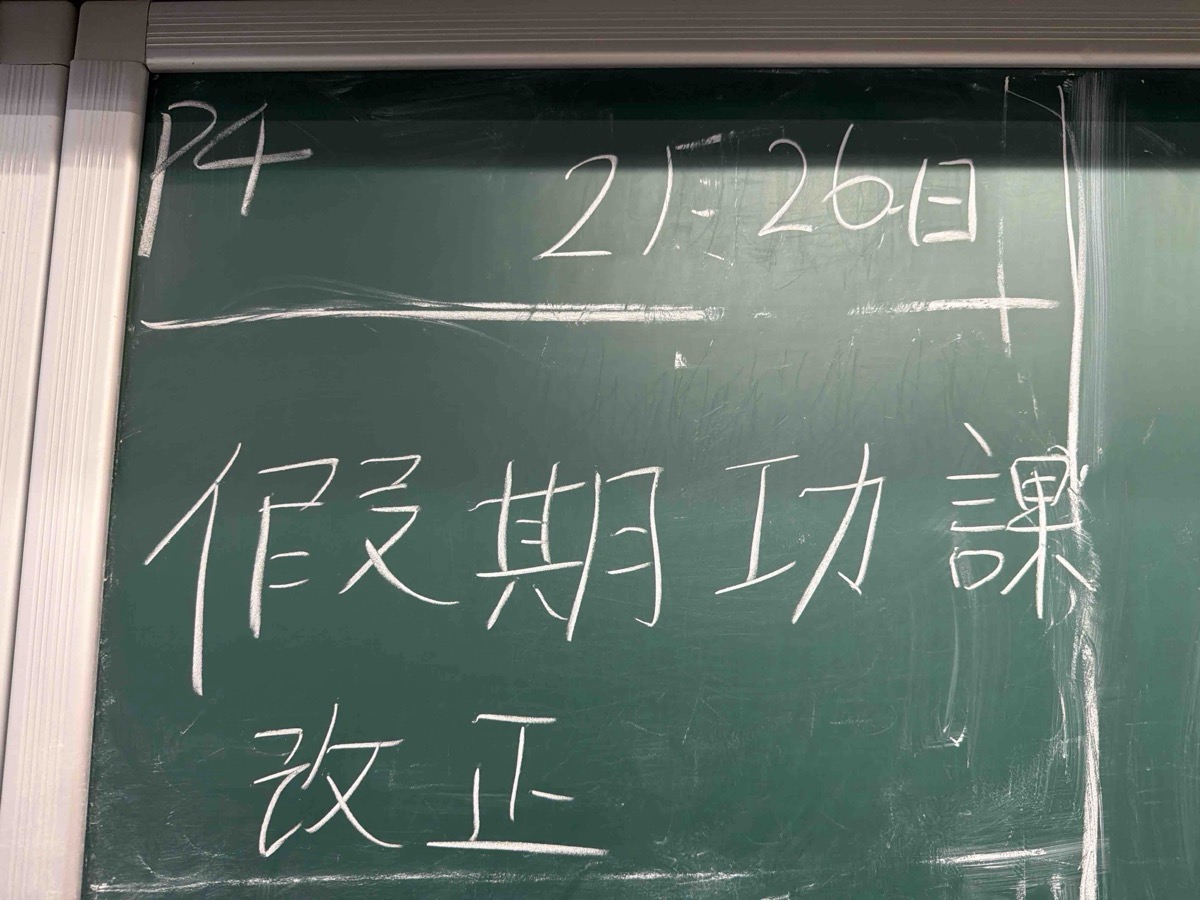 P4 2月26日
假期功課
改正